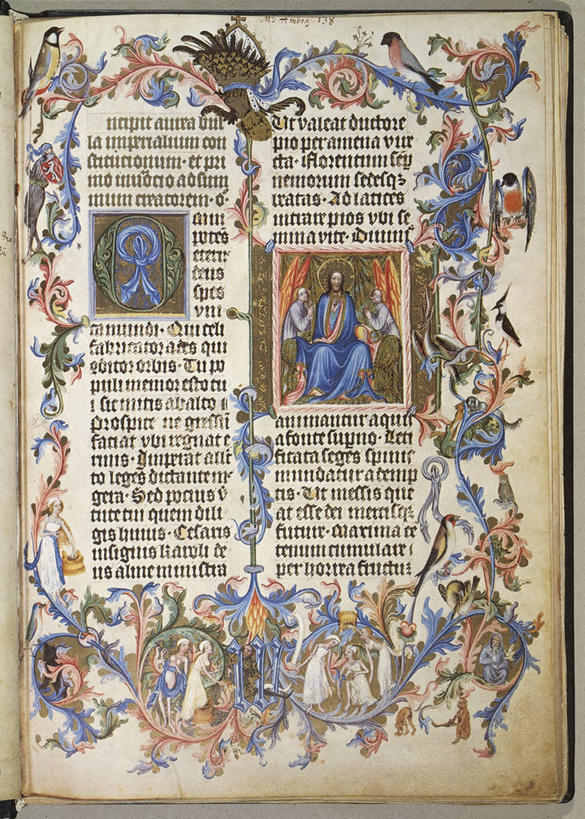 Ms. Ambras. 138
ncipit aurea bul
la imperialium con
stitucionum · et pri
mo inuocio ad sum
mum creatorem · O
mni
potēs
eterne
deus
spes
vni
ca mundi · Qui celi
fabricator ades qui
gditor orbis · Tu po
puli memor esto tui
sit mitis ab alto
Prospice ne gressū
faciat vbi regnat e
rinis · Imperat alle
cto leges dictante me
gera · Sed pocius v̄
tute tui quem dili
gis huius · Cesaris
insignis karoli de
us alme ministra
Ut valeat ductore
pio per amena vire
cta · florentum sep̄
nemorum sedesqȝ
beatas · Ad latices
intrare pios vbi se
mina vite · diuinis
animantur aquis
a fonte sup̄no · Leti
ficata seges spinis
mundatur ademp
tis · Ut messis que
at esse dei mercisqȝ
future · Maxima cē
tenum cumulare
per horrea fructum